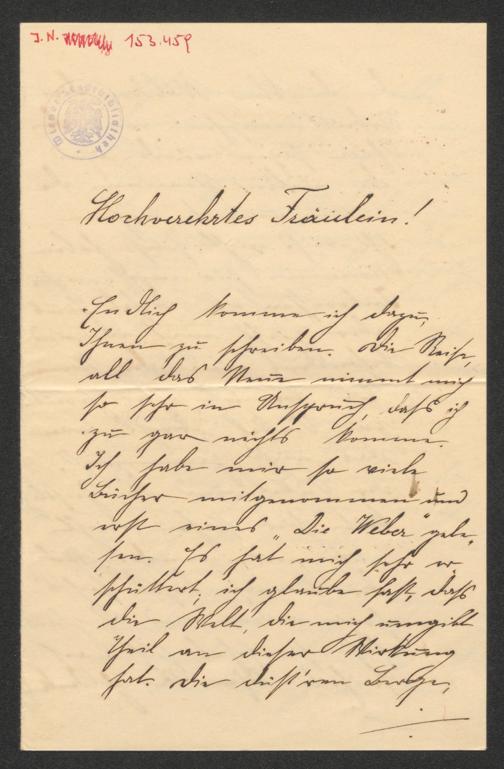 J. N. 153.459
Wiener Stadtbibliothek
Hochverehrtes Fräulein!
Endlich komme ich dazu,
Ihnen zu schreiben. Die Reise,
all das Neue nimmt mich
so sehr in Anspruch, daſs ich
zu gar nichts komme.
Ich habe mir so viele
Bücher mitgenommen und
erst eines „Die Weber" gele-
sen. Es hat mich sehr er-
schüttert, ich glaube fast, daſs
die Welt, die mich umgibt
Theil an dieser Wirkung
hat. Die düst'ren Berge,